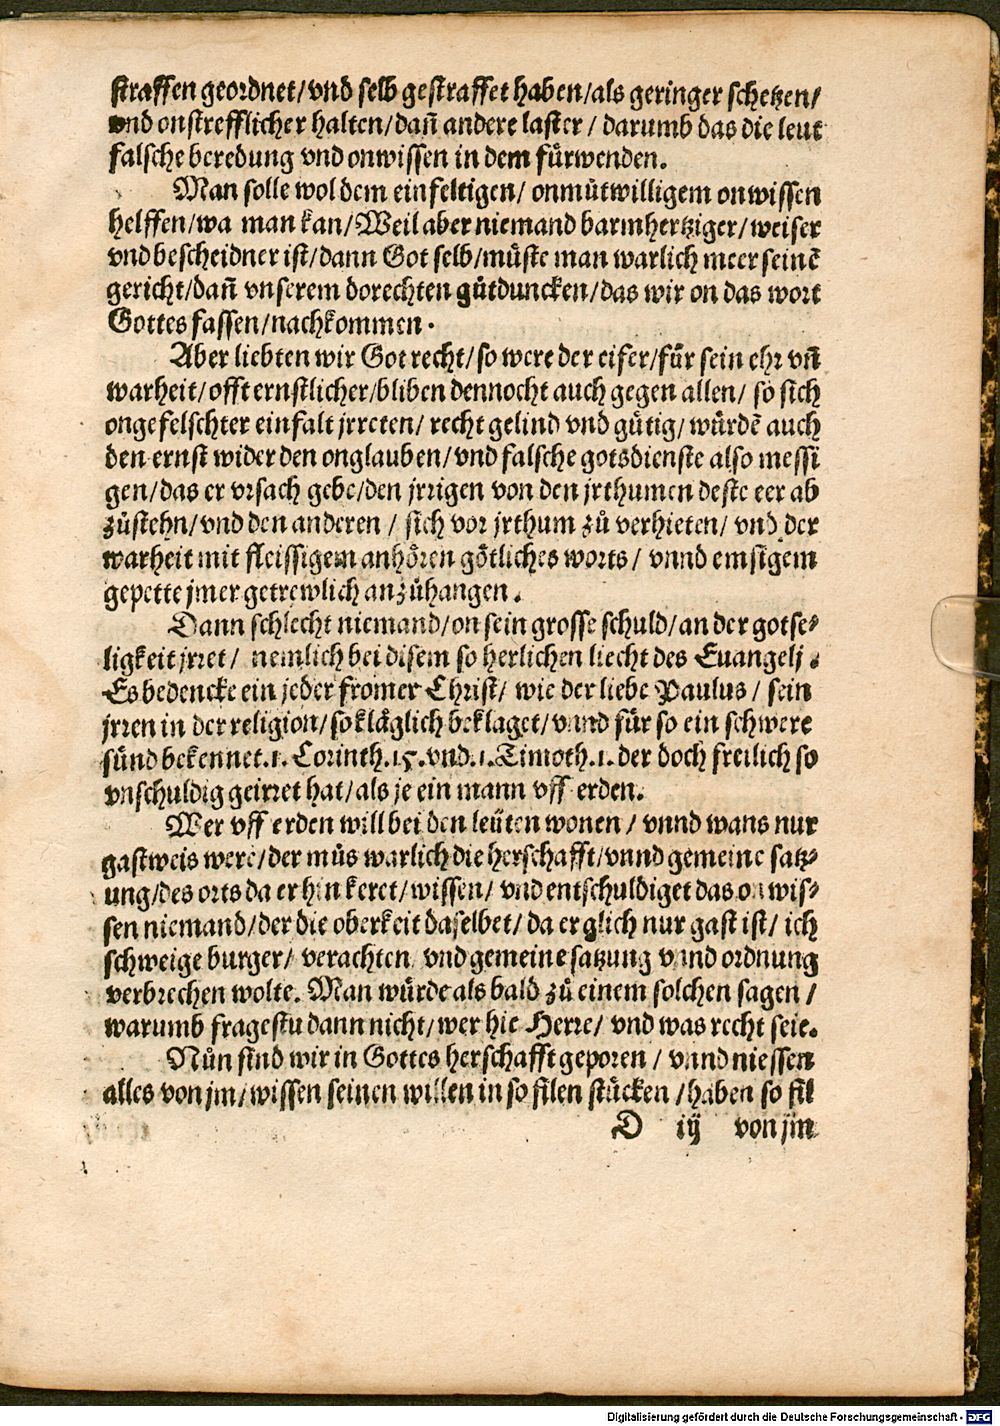 straffen geordnet/vnd selb gestraffet haben/als geringer schetzen/
vnd onstrefflicher halten/dañ andere laster / darumb das die leut
falsche beredung vnd onwissen in dem fürwenden.
Man solle wol dem einfeltigen/ onmůtwilligem onwissen
helffen/wa man kan/Weil aber niemand barmhertziger/weiser
vnd bescheidner ist/dann Got selb/můste man warlich meer seinē
gericht/dañ vnserem dorechten gůtduncken/das wir on das wort
Gottes fassen/nachkommen.
Aber liebten wir Got recht/so were der eifer/für sein ehr vñ
warheit/offt ernstlicher/bliben dennocht auch gegen allen/ so sich
ongefelschter einfalt jrreten/ recht gelind vnd gůtig/ würdē auch
den ernst wider den onglauben/vnd falsche gotsdienste also messi
gen/das er vrsach gebe/den jrrigen von den jrthumen deste eer ab
zůstehn/vnd den anderen / sich vor jrthum zů verhieten/ vnd der
warheit mit fleissigem anhören götliches worts/ vnnd emsigem
gepette jmer getrewlich anzůhangen.
Dann schlecht niemand/on sein grosse schuld/an der gotse-
ligkeit jrret/ nemlich bei disem so herlichen liecht des Euangelj.
Es bedencke ein jeder fromer Christ/ wie der liebe Paulus/ sein
jrren in der religion/so kläglich beklaget/vnnd für so ein schwere
sünd bekennet.1. Corinth.15.vnd.1.Timoth.1.der doch freilich so
vnschuldig geirret hat/als je ein mann vff erden.
Wer vff erden will bei den leüten wonen/ vnnd wans nur
gastweis were/der můs warlich die herschafft/vnnd gemeine satz-
ung/des orts da er hin keret/wissen/ vnd entschuldiget das onwis-
sen niemand/der die oberkeit daselbet/da er glich nur gast ist/ ich
schweige burger/ verachten vnd gemeine satzung vnnd ordnung
verbrechen wolte. Man würde als bald zů einem solchen sagen /
warumb fragestu dann nicht/wer hie Herre/ vnd was recht seie.
Nůn sind wir in Gottes herschafft geporen/ vnnd niessen
alles von jm/wissen seinen willen in so filen stücken/haben so fil
D iij von jm
Digitalisierung gefördert durch die Deutsche Forschungsgemeinschaft - DFG